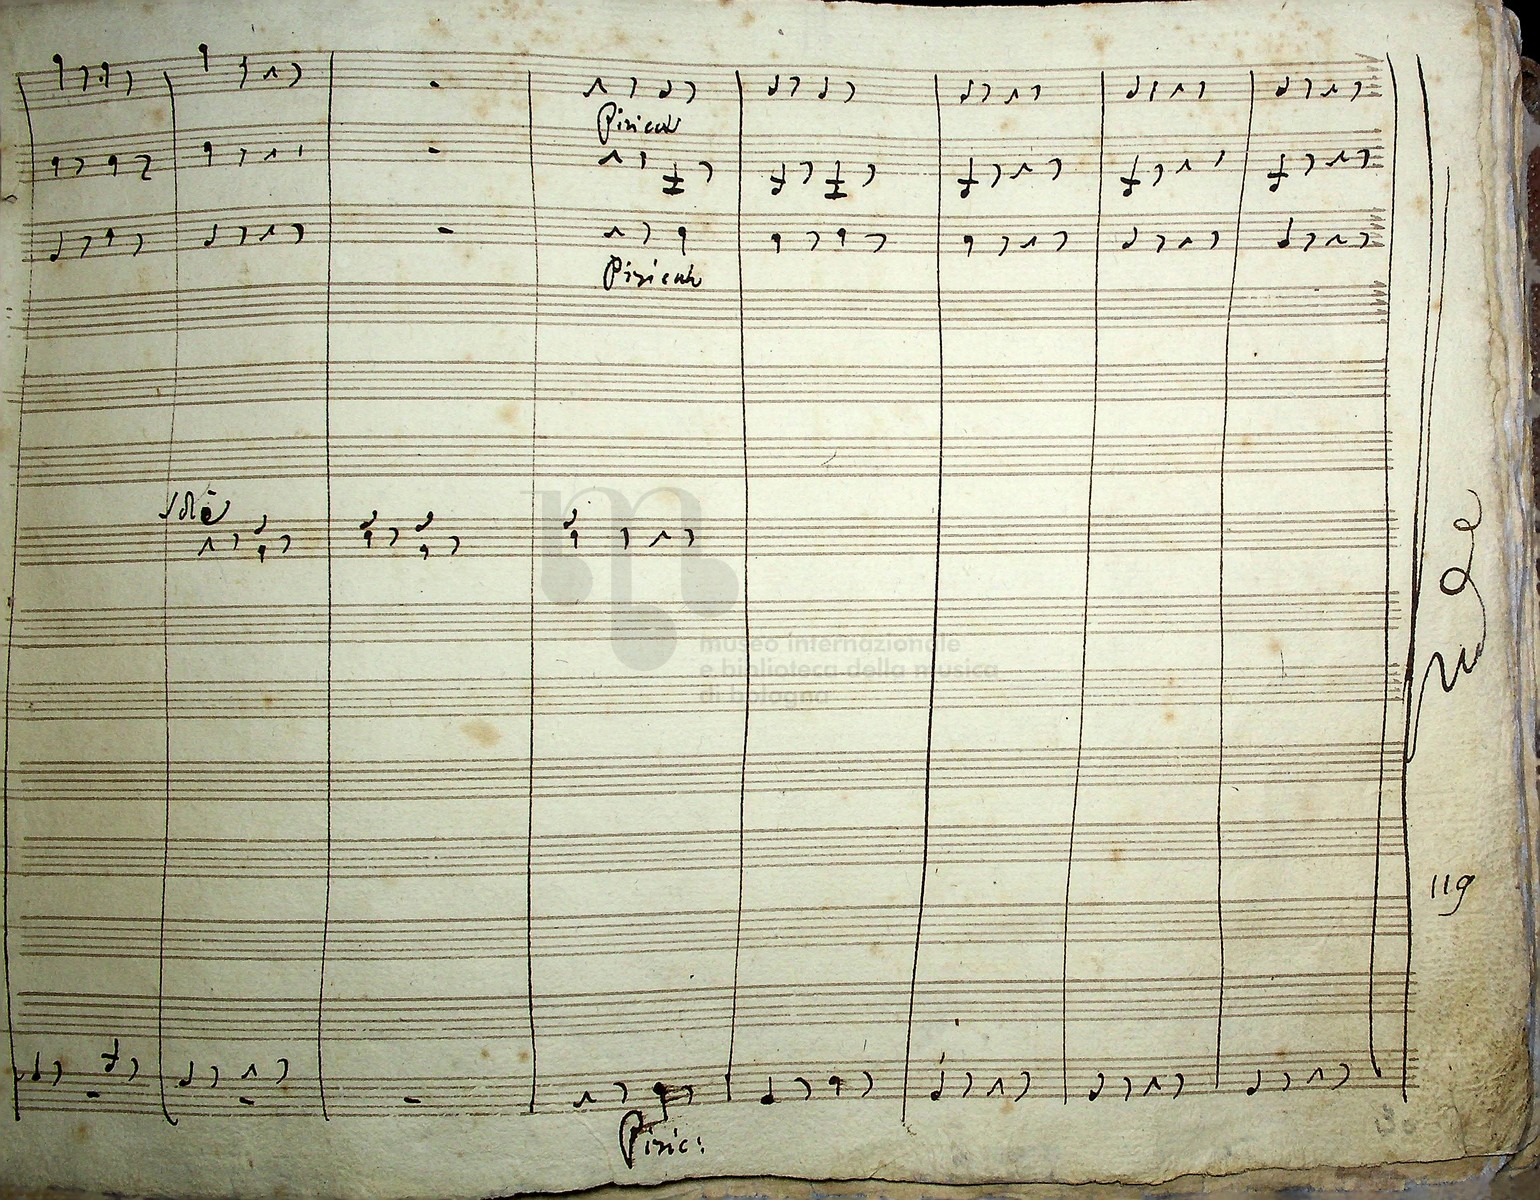 Pizicat
Pizicat
Soli
museo internazionale
e biblioteca della musica
di bologna
119
Pizic: